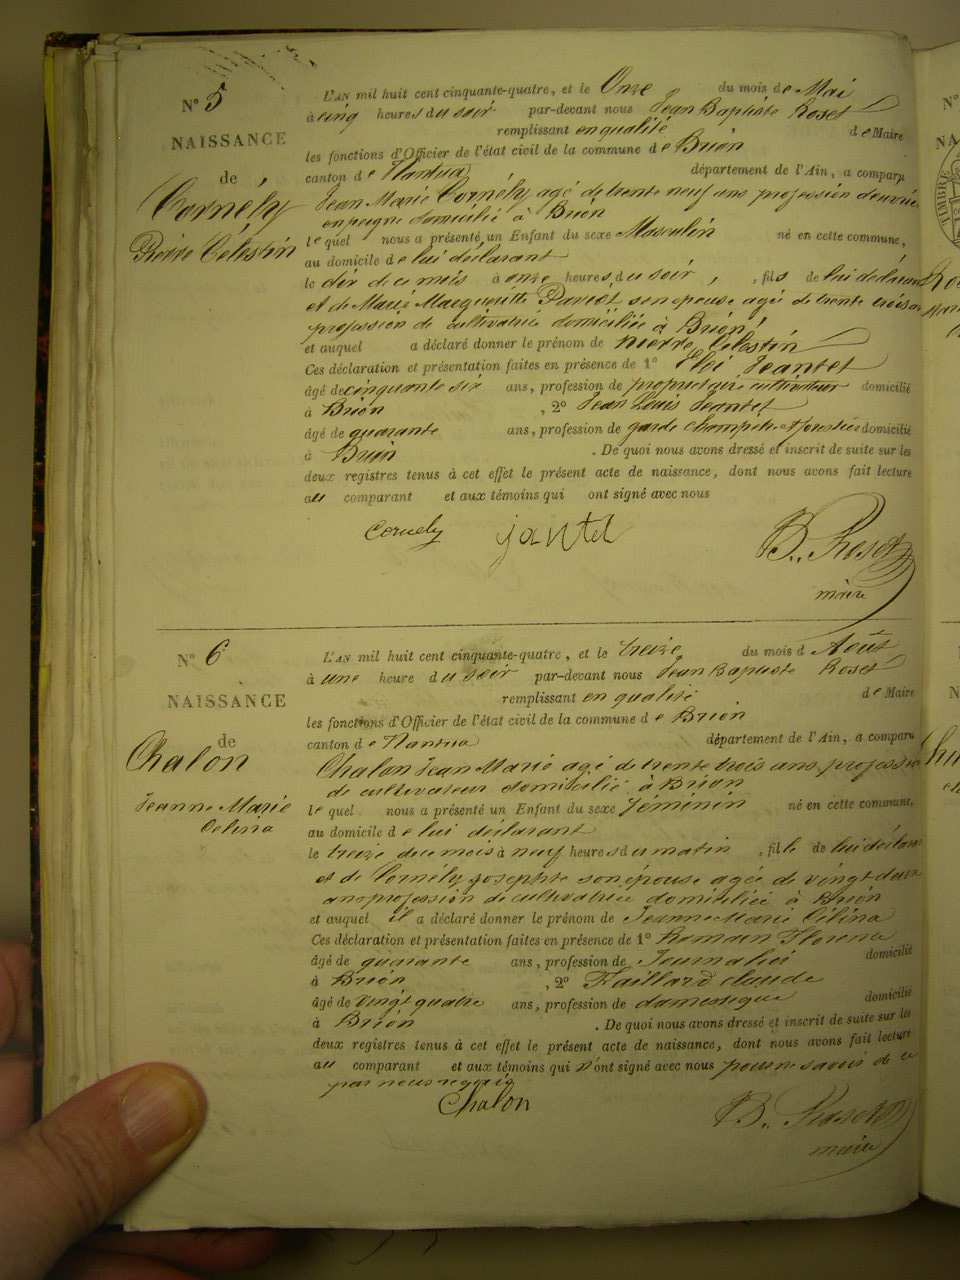 N° 5
NAISSANCE
de
Cornély
Pierre Célestin
L'AN mil huit cent cinquante-quatre, et le Onze du mois de Mai
à cinq heures du soir par-devant nous Jean Baptiste Roset
remplissant en qualité de Maire
les fonctions d'Officier de l'état civil de la commune de Brion
canton de Nantua département de l'Ain, a comparu
Jean Marie Cornély agé de trente neuf ans profession d'ouvrier
en peigne domicilié à Brion
lequel nous a présenté un Enfant du sexe Masculin né en cette commune,
au domicile de lui déclarant
le dix du mois à onze heures du soir, fils de lui déclarant
et de Marie Margueritte son epouse agé de trente trois an
profession de cultivatrice domiciliée à Brion
et auquel a déclaré donner le prénom de pierre Célestin
Ces déclaration et présentation faites en présence de 1° Eloi Jeantet
âgé de cinquante six ans, profession de propriétaire cultivateur domicilié
à Brion, 2° Jean Louis Jeantet
âgé de quarante ans, profession de garde champêtre et forestier domicilié
à Brion. De quoi nous avons dressé et inscrit de suite sur les
deux registres tenus à cet effet le présent acte de naissance, dont nous avons fait lecture
au comparant et aux témoins qui ont signé avec nous
Cornely jantet B. Roset
maire
N° 6
NAISSANCE
de
Chalon
Jeanne Marie
Celina
L'AN mil huit cent cinquante-quatre, et le treize du mois d Août
à une heure du soir par-devant nous Jean Baptiste Roset
remplissant en qualité de Maire
les fonctions d'Officier de l'état civil de la commune de Brion
canton de Nantua département de l'Ain, a comparu
Chalon Jean Marie agé de trente trois ans, profession
de cultivateur domicilié à Brion
lequel nous a présenté un Enfant du sexe féminin né en cette commune,
au domicile de lui déclarant
le treize de ce mois à neuf heures du matin, fille de lui déclarant
et de Cornély josephte son épouse agée de vingt deux
ans profession de cultivatrice domiciliée à Brion
et auquel il a déclaré donner le prénom de Jeanne Marie Célina
Ces déclaration et présentation faites en présence de 1° Romain
âgé de quarante ans, profession de Journalier domicilié
à Brion, 2° claude
âgé de vingt quatre ans, profession de domestique domicilié
à Brion. De quoi nous avons dressé et inscrit de suite sur les
deux registres tenus à cet effet le présent acte de naissance, dont nous avons fait lecture
au comparant et aux témoins qui n'ont signé avec nous pour ne savoir de ce
par nous requis
Chalon B. Roset
maire
TIMBRE